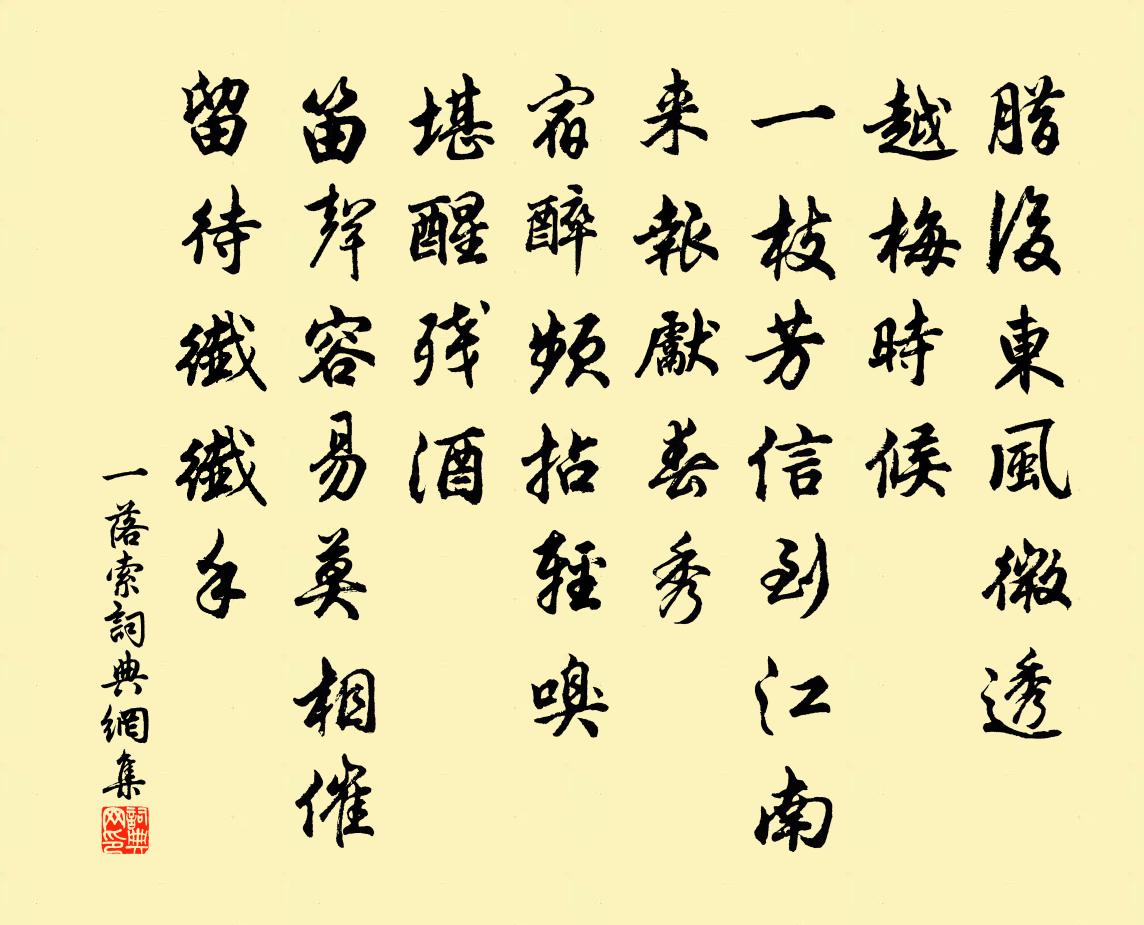 腊後東風微透
越梅時候
一枝芳信到江南
来報獻春秀
宿醉頻拈輕嗅
堪醒残酒
笛聲容易莫相催
留待纖纖手
一落索詞典網集
詞典网印